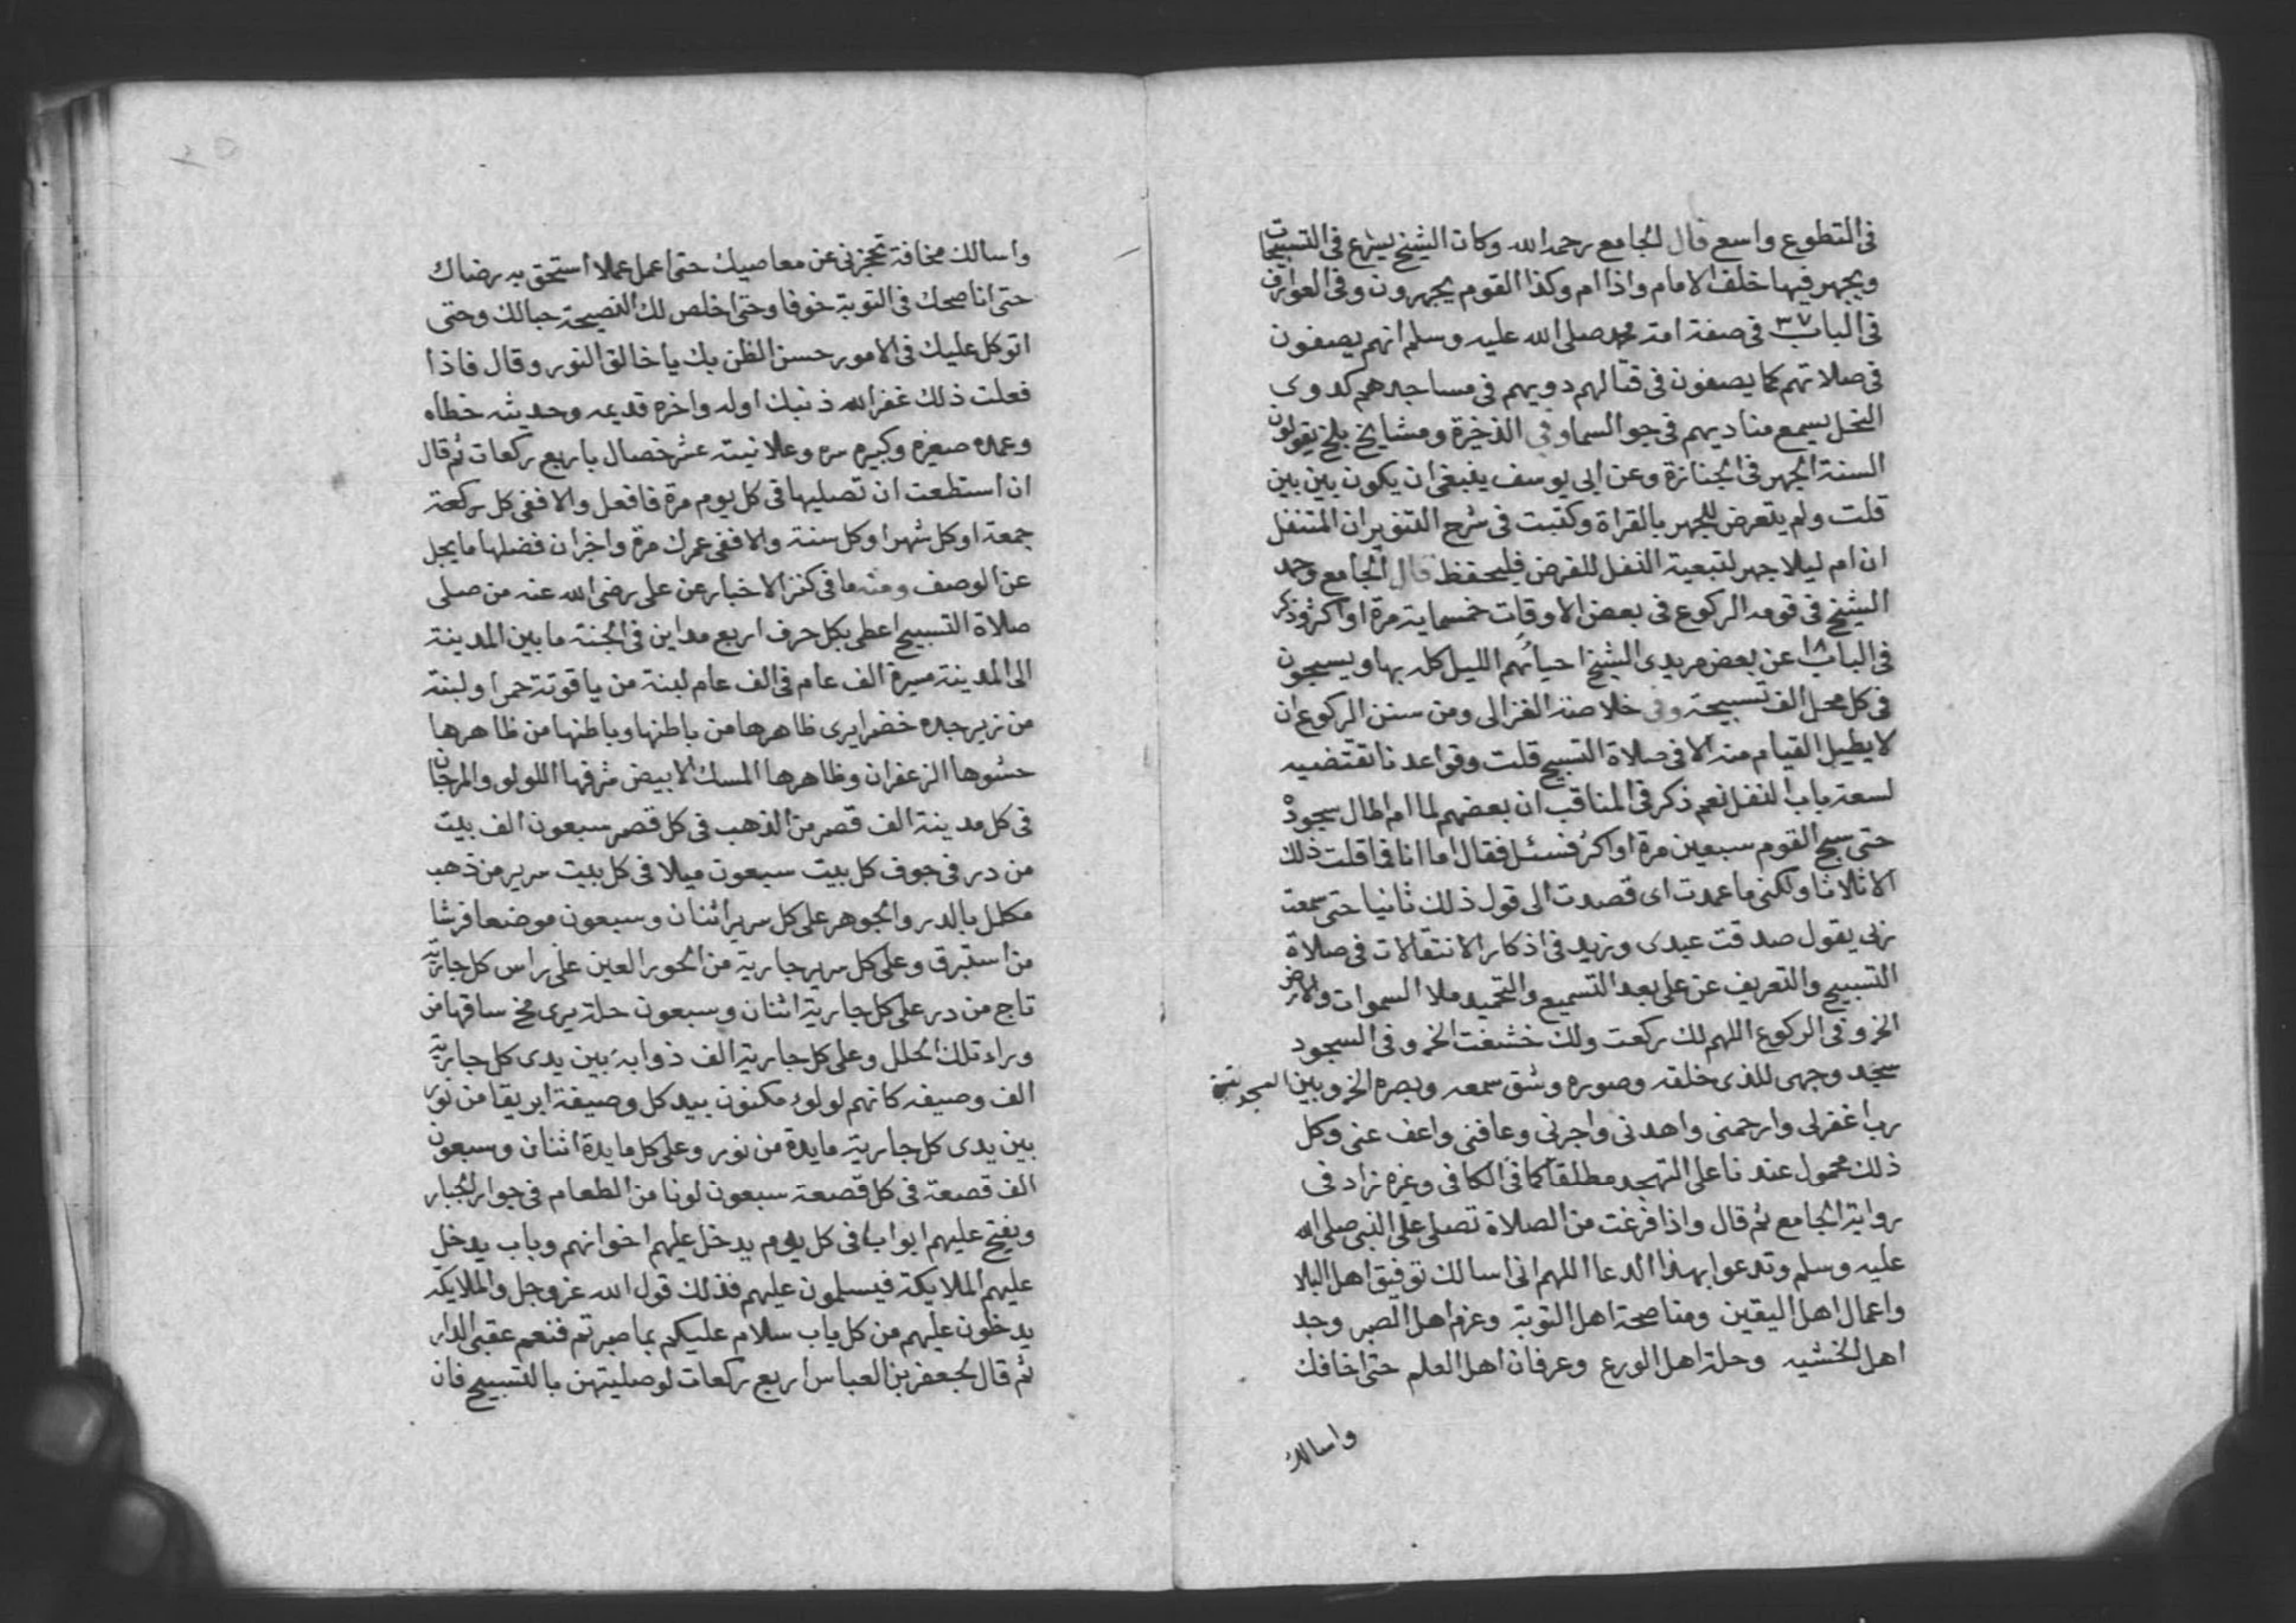 في التطوع واسع قال الجامع رحمه الله وكان الشيخ يشرع في التسبيحات
ويجهر فيها خلف الامام واذا ام وكذا القوم يجهرون وفي العوارف
في الباب ٣٧ في صفة امة محمد صلى الله عليه وسلم انهم يصفون
في صلاتهم كما يصفون في قتالهم دويهم في مساجدهم كدوى
النحل يسمع مناديهم في جو السما وفي الذخيرة ومشايخ بلخ يقولون
السنة الجهر في الجنازة وعن ابى يوسف ينبغى ان يكون بين بين
قلت ولم يتعرض للجهر بالقراة وكتبت في شرح التنوير ان المتنفل
ان ام ليلا جهر لتبعية النفل للفرض فليحفظ قال الجامع وحمد
الشيخ في قومه الركوع في بعض الاوقات خمسماية مرة او اكثر وذكر
في الباب ١٨ عن بعض مريدى الشيخ احيائهم الليل كله بها ويسبحون
في كل محل الف تسبيحة وفي خلاصة الغزالى ومن سنن الركوع ان
لا يطيل القيام منه الا في صلاة التسبيح قلت وقواعدنا تقتضيه
لسعة باب النفل نعم ذكر في المناقب ان بعضهم لما ام اطال سجوده
حتى سبح القوم سبعين مرة او اكثر فسئل فقال اما انا فما قلت ذلك
الا ثلاثا ولكنى ما عمدت اى قصدت الى قول ذلك ثانيا حتى سمعت
ربى يقول صدقت عبدى ونزيد في اذكار الانتقالات في صلاة
التسبيح والتعريف عن على بعد التسميع والتحميد ملا السموات والارض
الخ وفي الركوع اللهم لك ركعت ولك خشعت الخ وفي السجود
سجد وجهى للذى خلقه وصوره وشق سمعه وبصره الخ وبين السجدتين
رب اغفر لى وارحمنى واهدنى واجرنى وعافنى واعف عنى وكل
ذلك محمول عندنا على التهجد مطلقا كما في الكافى وغيره زاد في
رواية الجامع ثم قال واذا فرغت من الصلاة تصلى على النبى صلى الله
عليه وسلم وتدعوا بهذا الدعا اللهم انى اسالك توفيق اهل البلا
واعمال اهل اليقين ومناصحة اهل التوبة وعزم اهل الصبر وجد
اهل الخشيه وحلة اهل الورع وعرفان اهل العلم حتى اخافك
واسالك
واسالك مخافة تحجزنى عن معاصيك حتى اعمل عملا استحق به رضاك
حتى اناصحك في التوبة خوفا وحتى اخلص لك النصيحة حبالك وحتى
اتوكل عليك في الامور حسن الظن بك يا خالق النور وقال فاذا
فعلت ذلك غفر الله ذنبك اوله واخره قديمه وحديثه خطاه
وعمده صغيره وكبيره سره وعلانيته عشر خصال باربع ركعات ثم قال
ان استطعت ان تصليها في كل يوم مرة فافعل والا ففى كل ركعة
جمعة او كل شهر او كل سنة والا ففى عمرك مرة واخر ان فضلها ما يجل
عن الوصف ومنه ما في كنز الاخبار عن على رضى الله عنه من صلى
صلاة التسبيح اعطى بكل حرف اربع مداين في الجنة ما بين المدينة
الى المدينة مسيرة الف عام في الف عام لبنة من ياقوتة حمرا ولبنة
من زبرجده خضرا يرى ظاهرها من باطنها وباطنها من ظاهرها
حشوها الزعفران وظاهرها المسك الابيض شرفها اللولو والمرجان
في كل مدينة الف قصر من الذهب في كل قصر سبعون الف بيت
من در في جوف كل بيت سبعون ميلا في كل بيت سرير من ذهب
مكلل بالدر والجوهر على كل سرير اثنان وسبعون موضعا فرشا
من استبرق وعلى كل سرير جارية من الحور العين على راس كل جارية
تاج من در على كل جارية اثنان وسبعون حلة يرى مخ ساقها من
وراء تلك الحلل وعلى كل جارية الف ذوابة بين يدى كل جارية
الف وصيفه كانهم لولو مكنون بيد كل وصيفة ابريقا من نور
بين يدى كل جارية مايدة من نور وعلى كل مايدة اثنان وسبعون
الف قصعة في كل قصعة سبعون لونا من الطعام في جوار الجبار
ويفتح عليهم ابواب في كل يوم يدخل عليهم اخوانهم وباب يدخل
عليهم الملايكة فيسلمون عليهم فذلك قول الله عز وجل والملايكه
يدخلون عليهم من كل باب سلام عليكم بما صبرتم فنعم عقبى الدار
ثم قال لجعفر بن العباس اربع ركعات لو صليتهن بالتسبيح فان